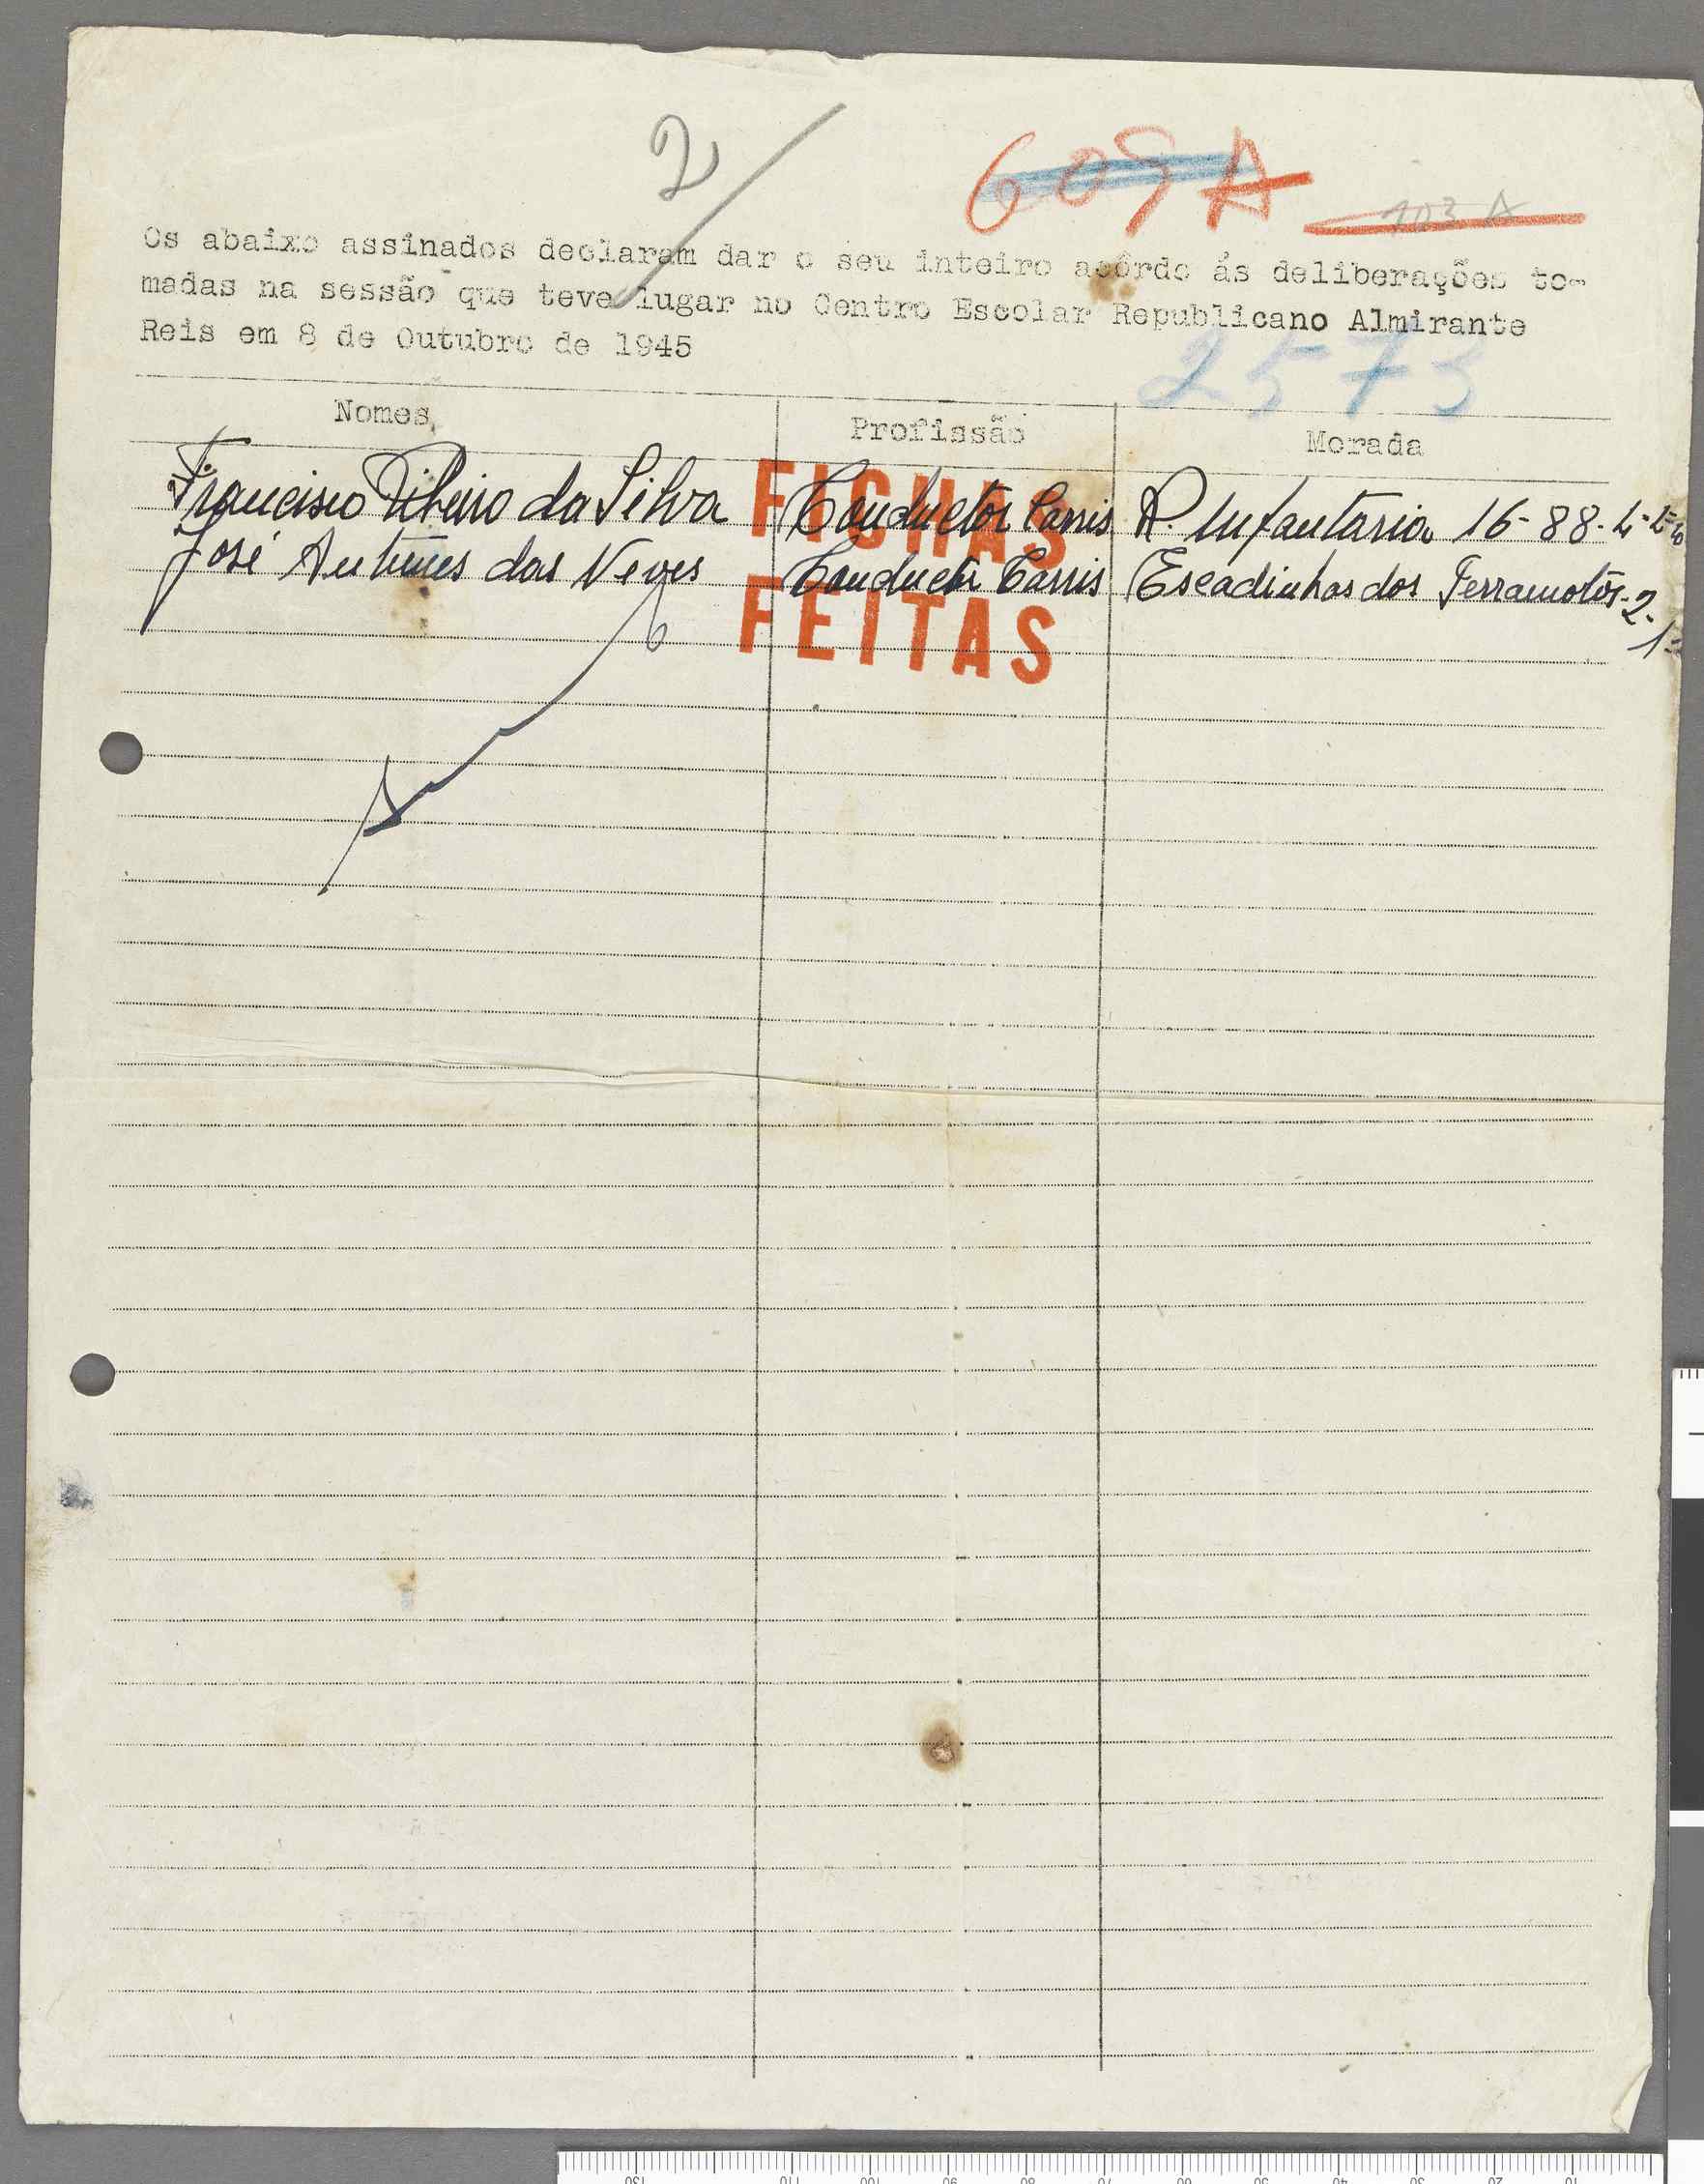 2
609 A
103 A
Os abaixo assinados declaram dar o seu inteiro acôrdo ás deliberações to-
madas na sessão que teve lugar no Centro Escolar Republicano Almirante
Reis em 8 de Outubro de 1945
2573
Nomes Profissão Morada
Francisco Ribeiro da Silva Conductor Carris R. Infantaria 16-88-4-
José Antunes das Neves Conductor Carris Escadinhas dos Terramotos-2-
1º
FICHAS
FEITAS